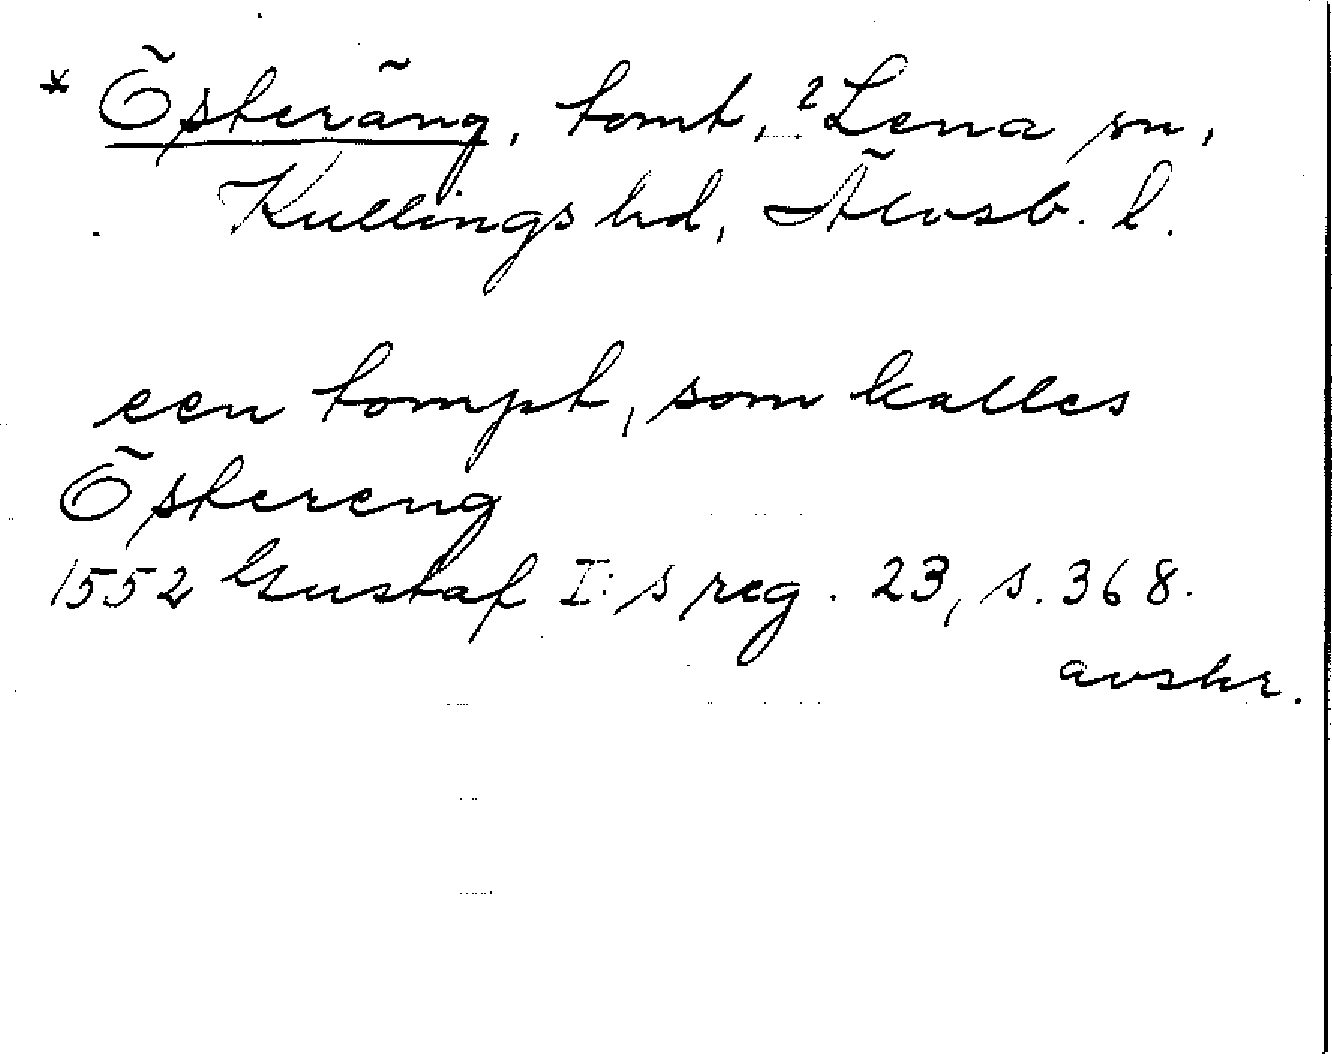 * Österäng, tomt, ²Lena sn,
Kullings hd, Älvsb. l.
een tompt, som kalles
Östereng
1552 Gustaf I:s reg. 23, s. 368.
avskr.